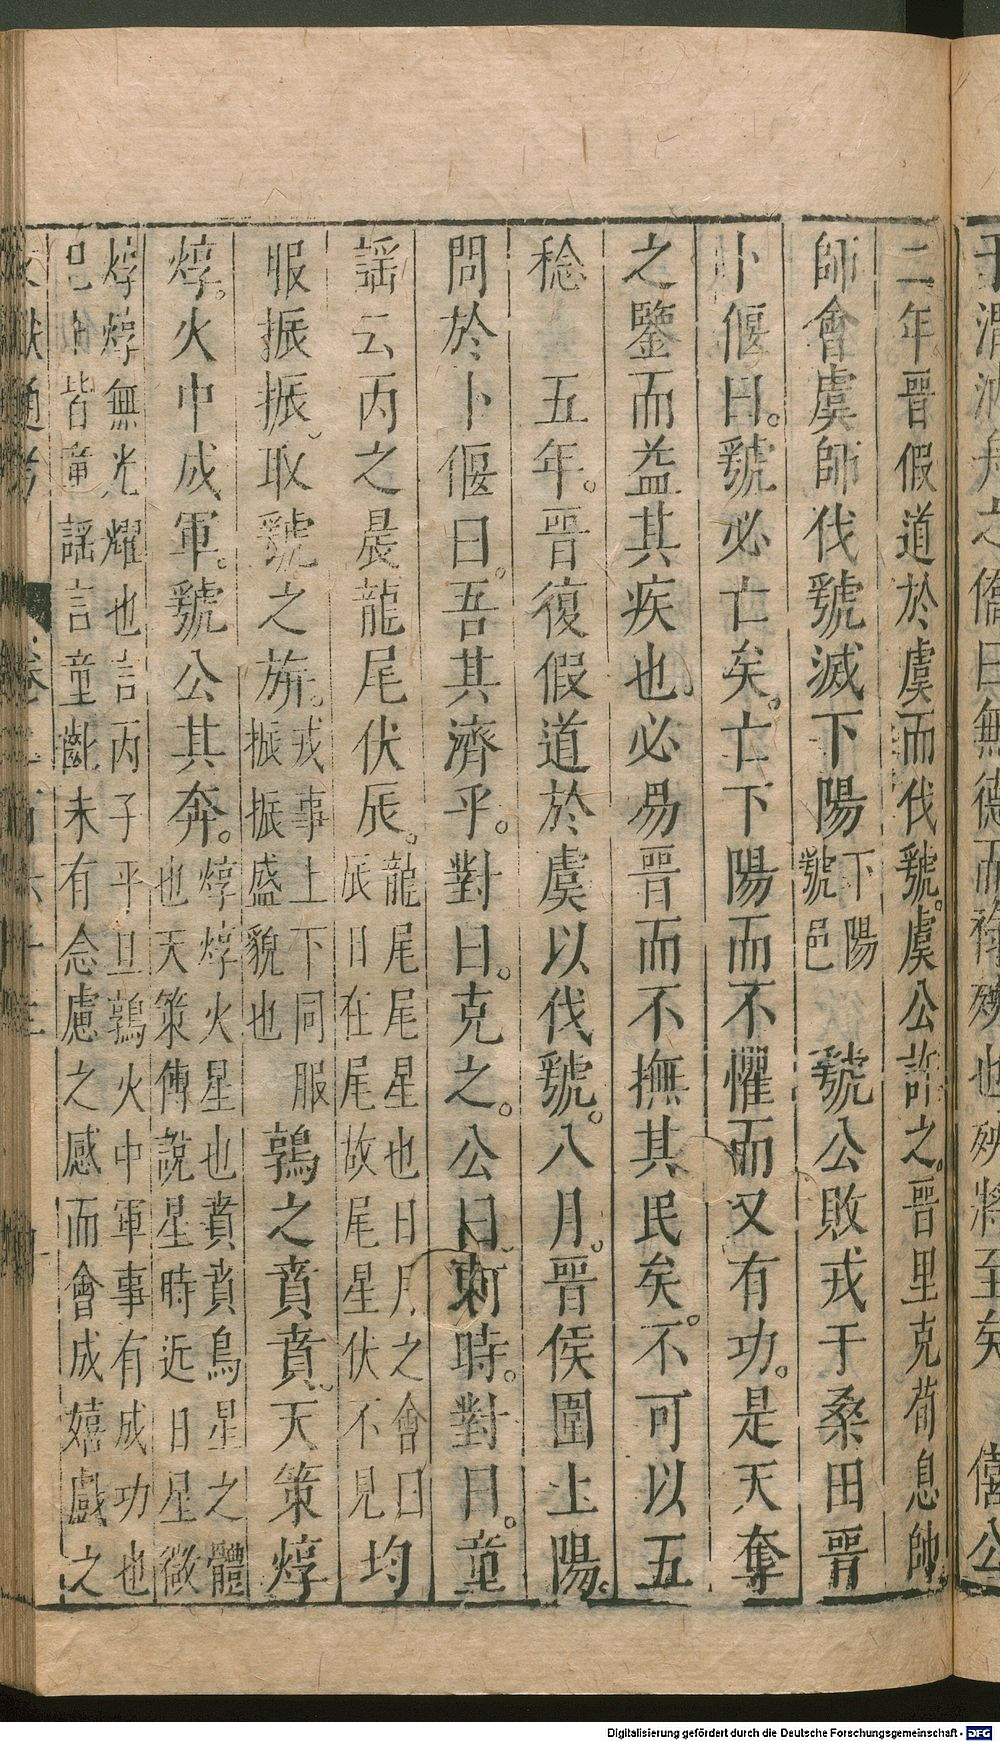 二年晉假道於虞而伐虢虞公許之晉里克荀息帥
師會虞師伐虢滅下陽下陽虢邑 虢公敗戎于桑田晉
卜偃曰虢必亡矣亡下陽而不懼而又有功是天奪
之鑒而益其疾也必易晉而不撫其民矣不可以五
稔 五年晉復假道於虞以伐虢八月晉侯圍上陽
問於卜偃曰吾其濟乎對曰克之公曰何時對曰童
謡云丙之晨龍尾伏辰龍尾尾星也日月之會曰辰日在尾故尾星伏不見均
服振振取虢之旂戎事上下同服振振盛貌也鶉之賁賁天策焞
焞火中成軍虢公其奔焞焞火星也賁賁鳥星之體也天策傳說星時近日星微
焞焞無光耀也言丙子平旦鶉火中軍事有成功也
已上皆童謡言童齔未有念慮之感而會成嬉戲之
Digitalisierung gefördert durch die Deutsche Forschungsgemeinschaft - DFG